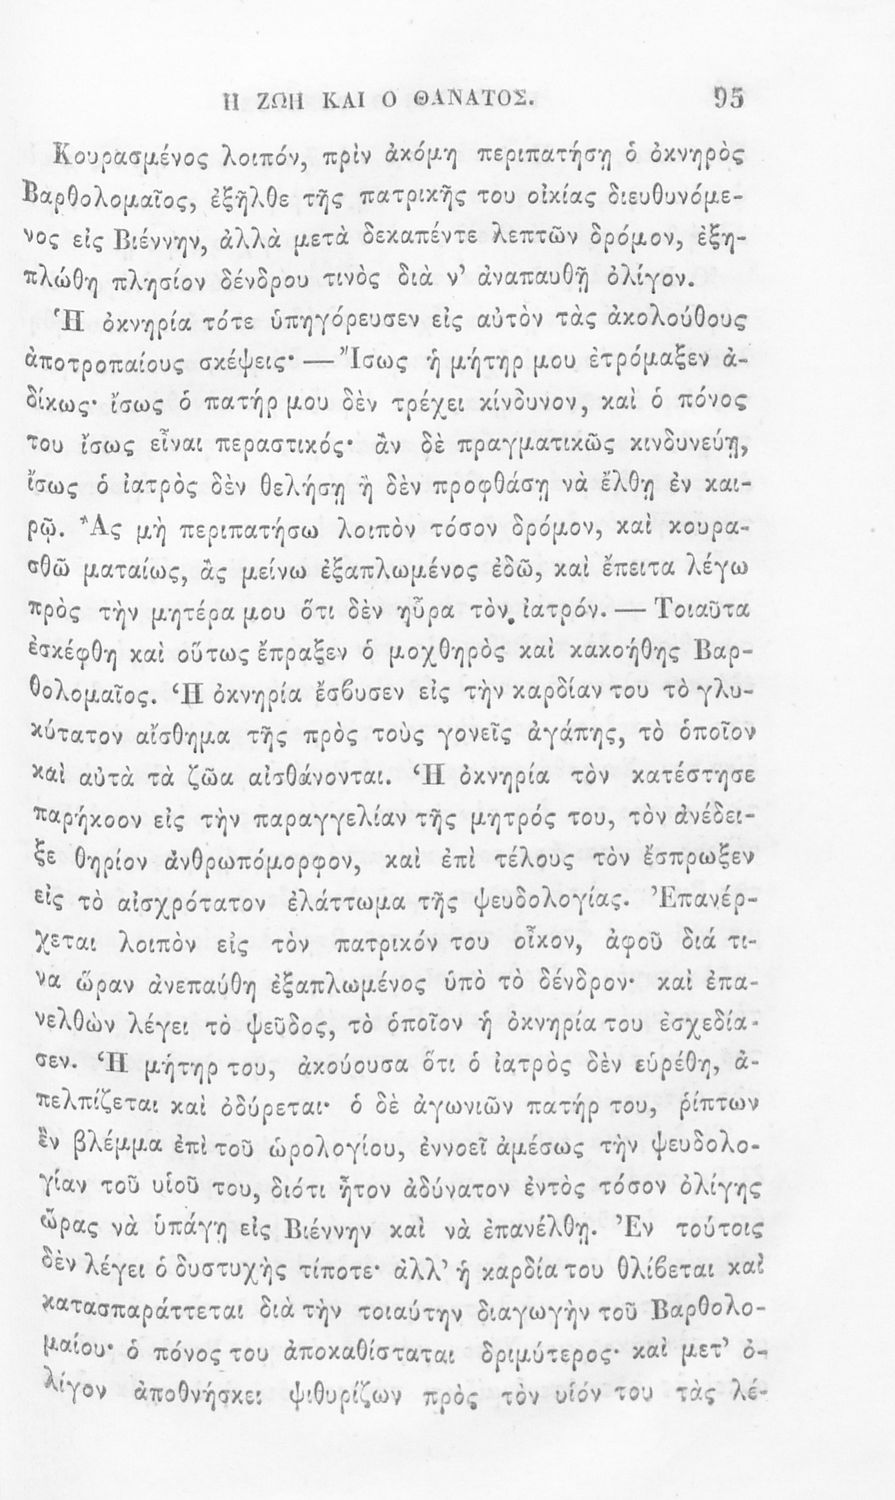 Η ΖΩΗ ΚΑΙ Ο ΘΑΝΑΤΟΣ. 95
Κουρασμένος λοιπόν, πρὶν ἀκόμη περιπατήσῃ ὁ ὀκνηρὸς
Βαρθολομαῖος, ἐξῆλθε τῆς πατρικῆς του οἰκίας διευθυνόμε-
νος εἰς Βιέννην, ἀλλὰ μετὰ δεκαπέντε λεπτῶν δρόμον, ἐξη-
πλώθη πλησίον δένδρου τινὸς διὰ ν’ ἀναπαυθῇ ὀλίγον.
Ἡ ὀκνηρία τότε ὑπηγόρευσεν εἰς αὐτὸν τὰς ἀκολούθους
ἀποτροπαίους σκέψεις· — Ἴσως ἡ μήτηρ μου ἐτρόμαξεν ἀ-
δίκως· ἴσως ὁ πατήρ μου δὲν τρέχει κίνδυνον, καὶ ὁ πόνος
του ἴσως εἶναι περαστικός· ἂν δὲ πραγματικῶς κινδυνεύῃ,
ἴσως ὁ ἰατρὸς δὲν θελήσῃ ἢ δὲν προφθάσῃ νὰ ἔλθῃ ἐν και-
ρῷ. Ἂς μὴ περιπατήσω λοιπὸν τόσον δρόμον, καὶ κουρα-
σθῶ ματαίως, ἂς μείνω ἐξαπλωμένος ἐδῶ, καὶ ἔπειτα λέγω
πρὸς τὴν μητέρα μου ὅτι δὲν ηὗρα τὸν ἰατρόν. — Τοιαῦτα
ἐσκέφθη καὶ οὕτως ἔπραξεν ὁ μοχθηρὸς καὶ κακοήθης Βαρ-
θολομαῖος. Ἡ ὀκνηρία ἔσβυσεν εἰς τὴν καρδίαν του τὸ γλυ-
κύτατον αἴσθημα τῆς πρὸς τοὺς γονεῖς ἀγάπης, τὸ ὁποῖον
καὶ αὐτὰ τὰ ζῶα αἰσθάνονται. Ἡ ὀκνηρία τὸν κατέστησε
παρήκοον εἰς τὴν παραγγελίαν τῆς μητρός του, τὸν ἀνέδει-
ξε θηρίον ἀνθρωπόμορφον, καὶ ἐπὶ τέλους τὸν ἔσπρωξεν
εἰς τὸ αἰσχρότατον ἐλάττωμα τῆς ψευδολογίας. Ἐπανέρ-
χεται λοιπὸν εἰς τὸν πατρικόν του οἶκον, ἀφοῦ διά τι-
να ὥραν ἀνεπαύθη ἐξαπλωμένος ὑπὸ τὸ δένδρον· καὶ ἐπα-
νελθὼν λέγει τὸ ψεῦδος, τὸ ὁποῖον ἡ ὀκνηρία του ἐσχεδία-
σεν. Ἡ μήτηρ του, ἀκούουσα ὅτι ὁ ἰατρὸς δὲν εὑρέθη, ἀ-
πελπίζεται καὶ ὀδύρεται· ὁ δὲ ἀγωνιῶν πατήρ του, ῥίπτων
ἓν βλέμμα ἐπὶ τοῦ ὡρολογίου, ἐννοεῖ ἀμέσως τὴν ψευδολο-
γίαν τοῦ υἱοῦ του, διότι ἦτον ἀδύνατον ἐντὸς τόσον ὀλίγης
ὥρας νὰ ὑπάγῃ εἰς Βιέννην καὶ νὰ ἐπανέλθῃ. Ἐν τούτοις
δὲν λέγει ὁ δυστυχὴς τίποτε· ἀλλ’ ἡ καρδία του θλίβεται καὶ
κατασπαράττεται διὰ τὴν τοιαύτην διαγωγὴν τοῦ Βαρθολο-
μαίου· ὁ πόνος του ἀποκαθίσταται δριμύτερος· καὶ μετ’ ὀ-
λίγον ἀποθνήσκει ψιθυρίζων πρὸς τὸν υἱόν του τὰς λέ-